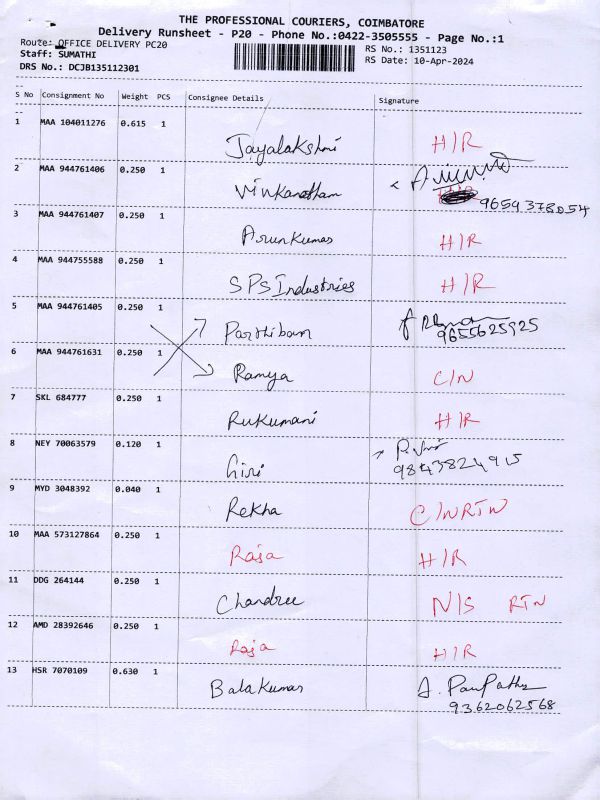 THE PROFESSIONAL COURIERS, COIMBATORE
Delivery Runsheet - P20 - Phone No.:0422-3505555 - Page No.:1
Route: OFFICE DELIVERY PC20
RS No.: 1351123
Staff: SUMATHI
RS Date: 10-Apr-2024
DRS No.: DCJB135112301
S No Consignment No Weight PCS Consignee Details Signature
1 MAA 104011276 0.615 1
Jayalakshmi H/R
2 MAA 944761406 0.250 1
9659378054
3 MAA 944761407 0.250 1
Arunkumar H/R
4 MAA 944755588 0.250 1
SPS Industries H/R
5 MAA 944761405 0.250 1
Parthiban
9655625925
6 MAA 944761631 0.250 1
Ramya C/N
7 SKL 684777 0.250 1
Rukumani H/R
8 NEY 70063579 0.120 1
Giri 9843824915
9 MYD 3048392 0.040 1
Rekha C/N RTN
10 MAA 573127864 0.250 1
Raja H/R
11 DDG 264144 0.250 1
Chandree N/S RTN
12 AMD 28392646 0.250 1
Raja H/R
13 HSR 7070109 0.630 1
Balakumar
9362062568